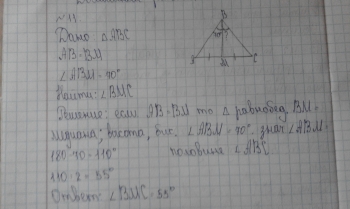 № 11
Дано △ABC
AB=BM
∠ABM=70°
Найти: ∠BMC
Решение: если AB=BM то △ равнобед, BM-
медиана; высота, бис. ∠ABM=70° знач ∠ABM-
180-70=110° половине ∠ABC
110:2=55°
Ответ: ∠BMC=55°
B
70°
M
C